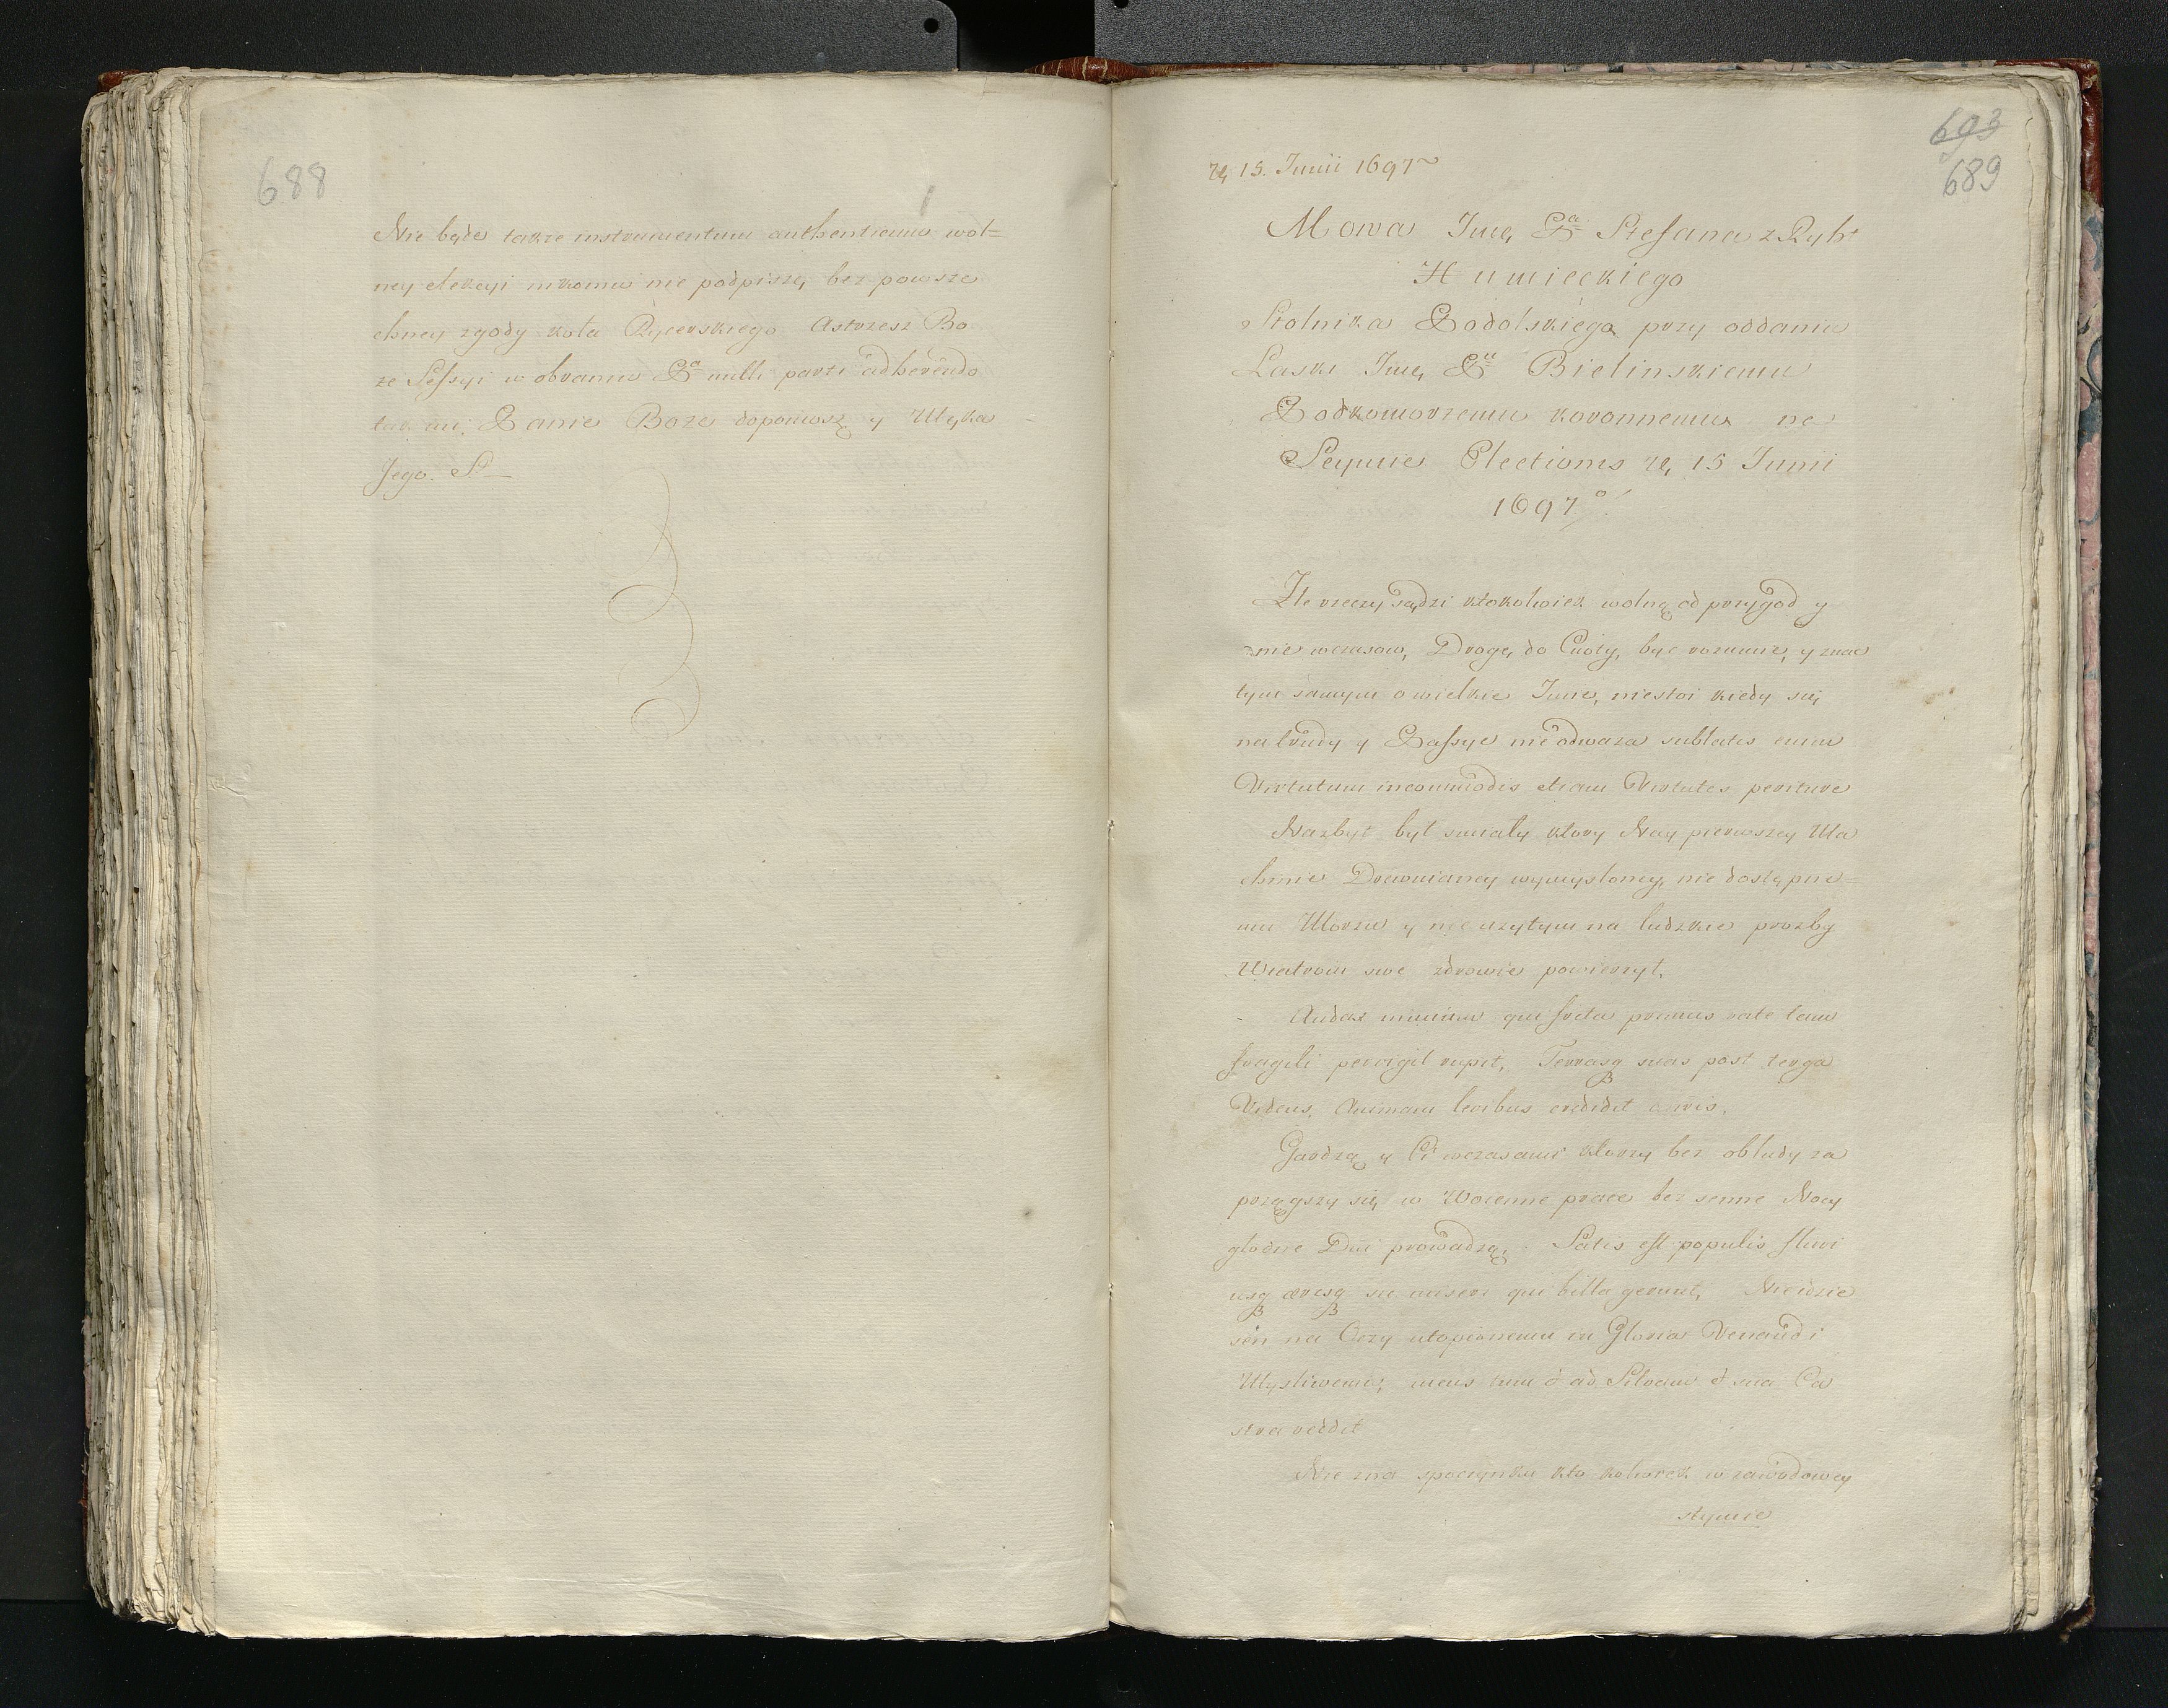 688
Nie będe także instrumentum authenticum wol=
ney elekcyi nikomu nie podpiszę, bez powsze
chney zgody koła Rycerskiego Astrzesz Bo
ze Sessyi w obraniu Pa nulli parti adherendo
tak mi Panie Boze dopomosz y Męka
Jego. S.
693
689
15. Junii 1697
Mowa Jmę Pa Stefana z Rych
Humieckiego
Stolnika Podolskiego przy oddaniu
Laski Jmę Pu Bielinskiemu
Podkomorzemu koronnemu na
Seymie Electionis 15 Junii
1697o
Zle rzeczy sądzi ktokolwiek wolną od przygod y
niewczasow, Drogę do Cnoty, być rozumie, y znac
tym samym o wielkie Jmie, niestoi kiedy się
na trudy y Passye nie odwaza sublatis enim
Virtutum incommodis etiam Virtutes periture
Nazbyt był smiały ktory Nay pierwszey Ma
chinie Drewnianey wymysloney, nie dostępne=
mu Morzu y nie uzytym na ludzkie prozby
Wiatrom swe zdrowie powierzył.
Audax nimium qui freta primus rate tam
fragili perrigil rupit, Terrasq suas post terga
Videns, Animam levibus credidit auris.
Gardzą y Ci wczasami ktorzy bez obludy za
przągszy się w Woienne prace bez senne Nocy
głodne Dni prowadzą. Satis est populis fluvi
usq ceresq sic miseri qui bella gerunt, Nieidzie
sen na Oczy utopionemu in Gloria Venandi
Mysliwemu, mens tum ad Silvam sua Ca
stra reddit
Nie zna spoczynku kto kolwiek w zawodowey
stymie